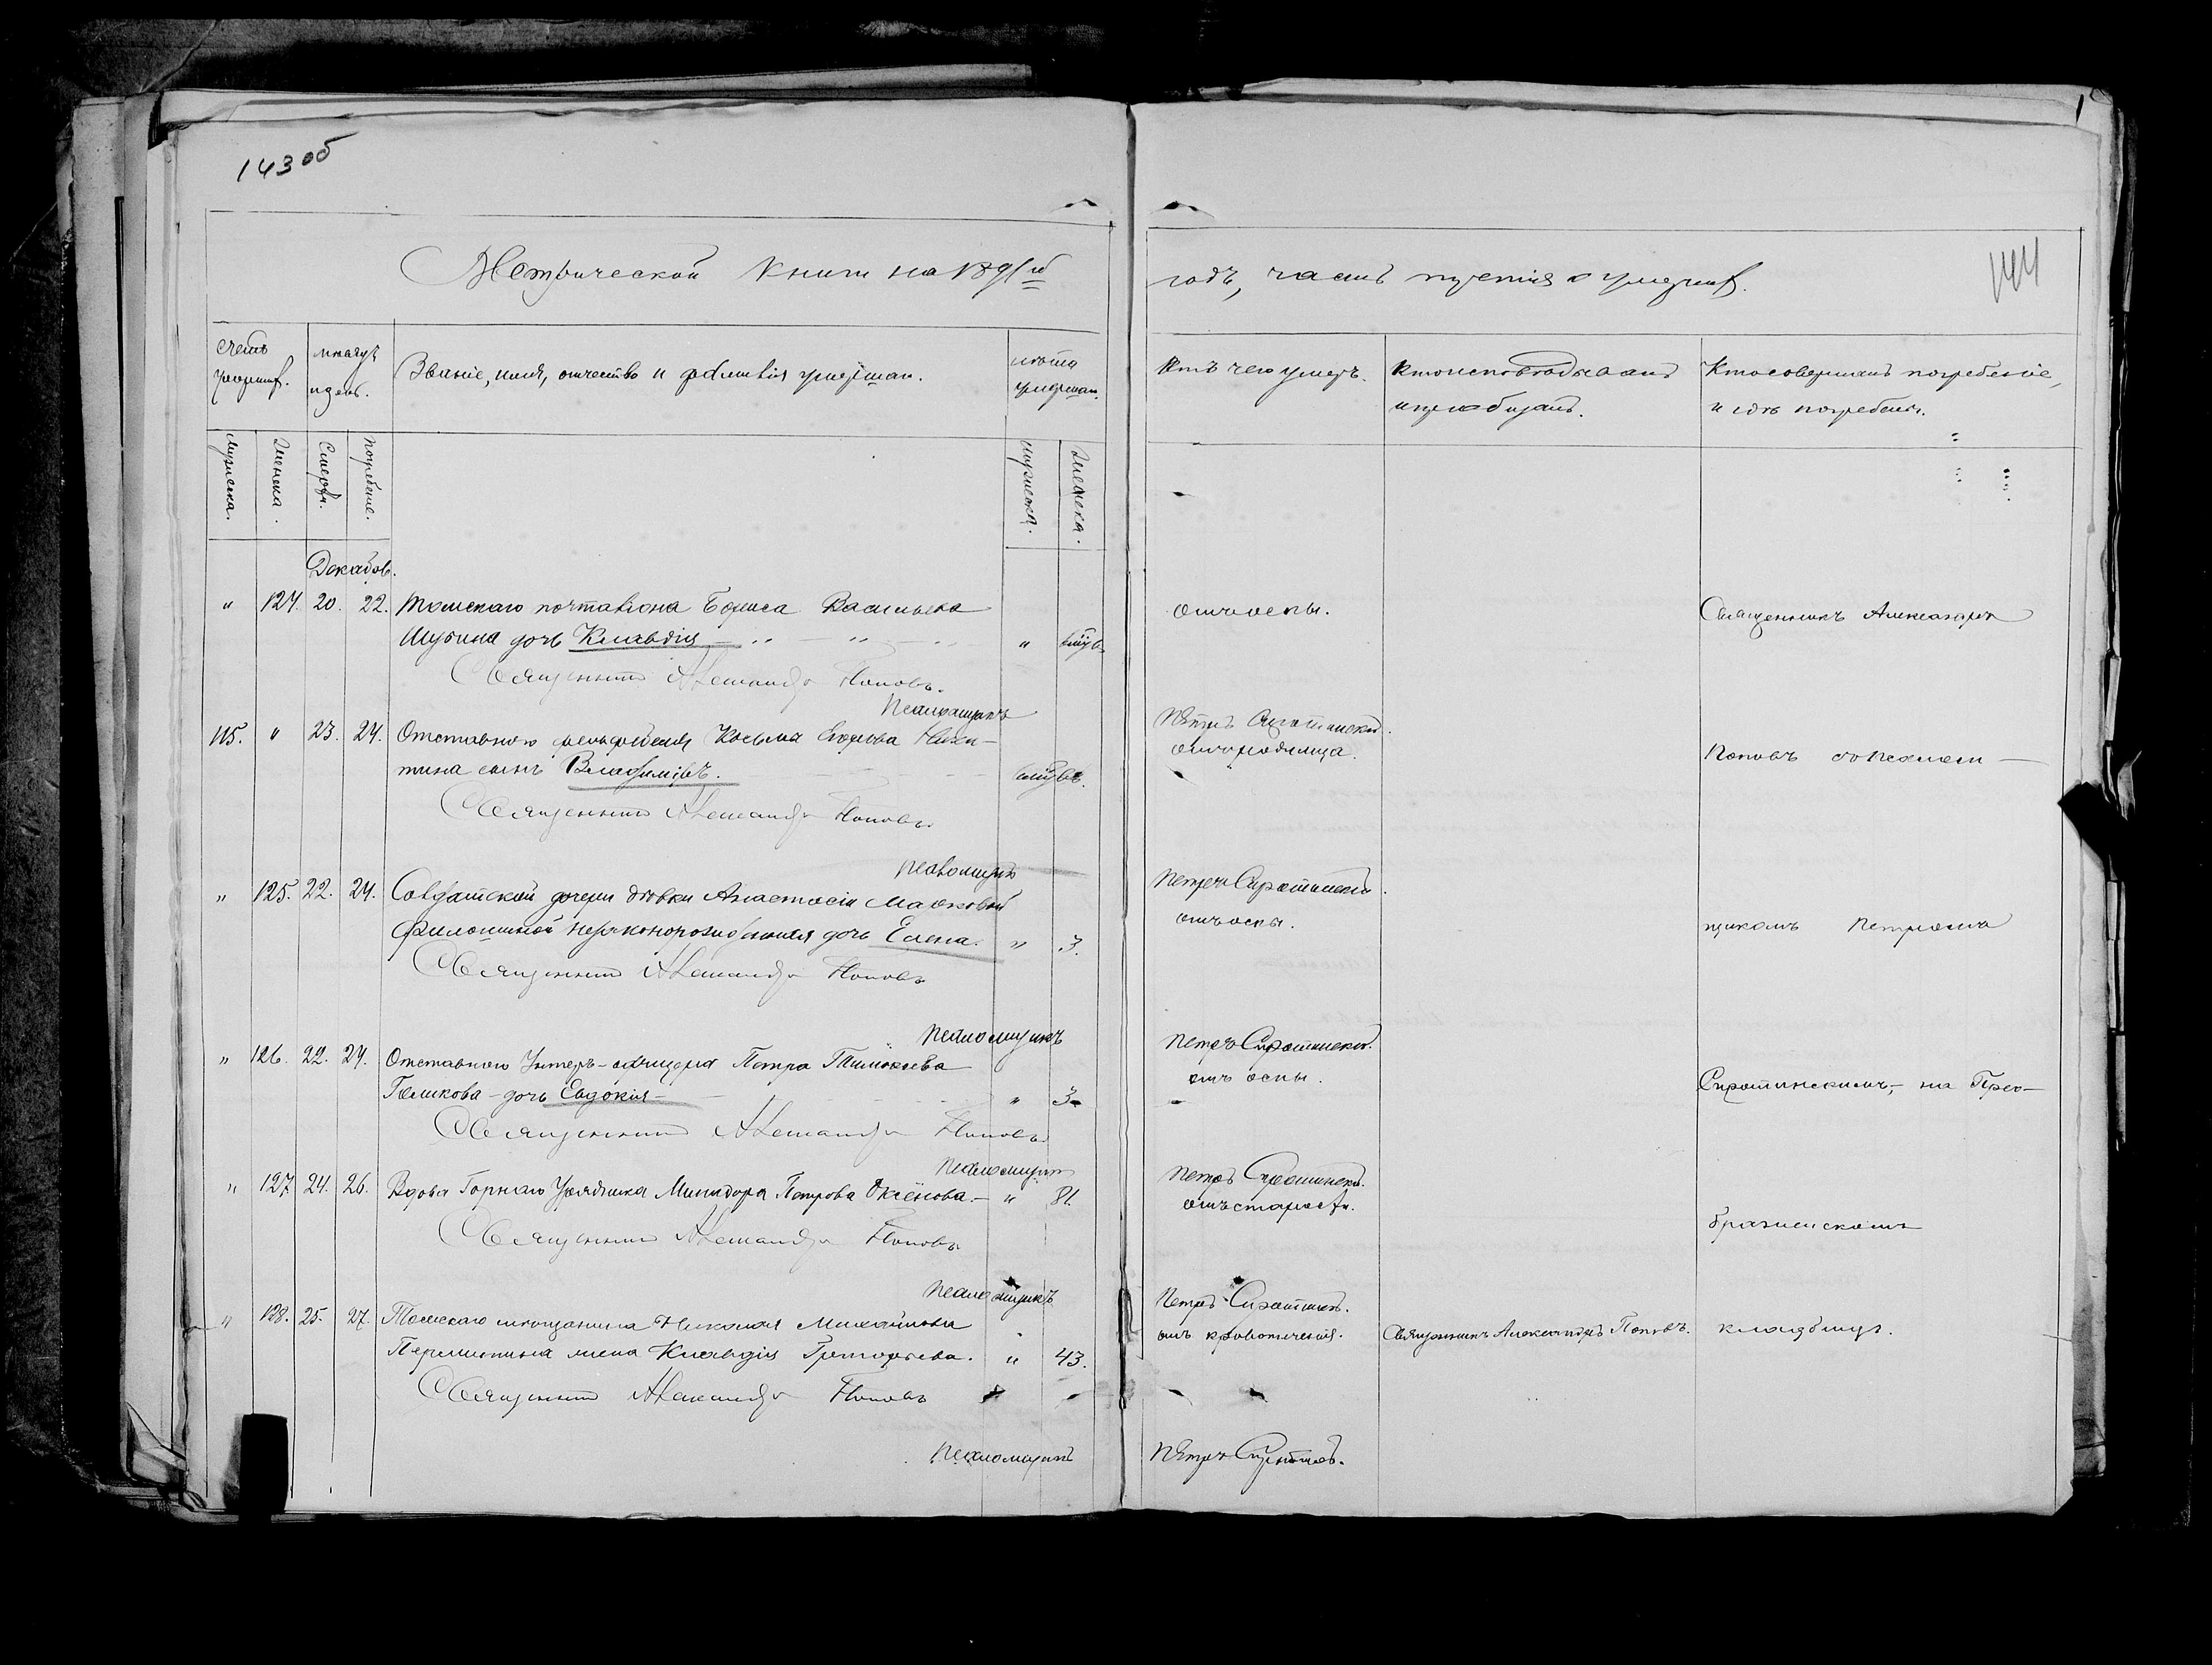 143 об
Метрической книги на 1891й
годъ, часть третія о умерших.
144
Счетъ умершихъ.
Мѣсяцъ и день.
Званіе, имя, отчество и фамилія умершаго.
Лѣта умершаго.
Отъ чего умеръ.
Кто исповѣдывалъ и пріобщалъ.
Кто совершалъ погребеніе, и гдѣ погребены.
Мужеска.
Женска.
Смерти.
Погребенія.
мужеска.
Женска.
Декабрь.
" 124. 20. 22. Томскаго почталіона Бориса Васильева
отъ оспы.
Священникъ Александръ
Шубина дочь Клавдія " "
Священникъ Александръ Поповъ.
Псаломщикъ
Петръ Сиротинскій.
115. " 23. 24. Отставного фельдфебеля Косьма Егорова Ники-
отъ родимца.
Поповъ съ Псалом-
тина сынъ Владиміръ.
Священникъ Александръ Поповъ
Псаломщикъ
Петръ Сиротинскій.
" 125. 22. 24. Солдатской дочери дѣвки Анастасіи Марковой
отъ оспы.
щикомъ Петромъ
Филошиной незаконорожденная дочь Елена. " 3.
Священникъ Александръ Поповъ
Псаломщикъ
Петръ Сиротинскій.
" 126. 22. 24. Отставного Унтеръ-офицера Петра Тимофеева
отъ оспы.
Сиротинскимъ, на Прео-
Голикова - дочь Евдокія - " 3.
Священникъ Александръ Поповъ
Псаломщикъ
Петръ Сиротинскій.
" 127. 24. 26. Вдова Горнаго Урядника Минидора Петрова Оксёнова. - " 81.
отъ старости.
браженскомъ
Священникъ Александръ Поповъ
Псаломщикъ
Петръ Сиротинск.
" 128. 25. 27. Томскаго мѣщанина Николая Михайлова
отъ кровотеченія. Священникъ Александръ Поповъ. кладбищѣ.
Перемитина жена Клавдія Григорьева. " 43.
Священникъ Александръ Поповъ
Псаломщикъ
Петръ Сиротинск.